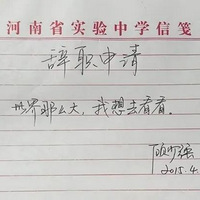 河南省实验中学信笺
辞职申请
世界那么大，我想去看看。
顾少强
2015.4.